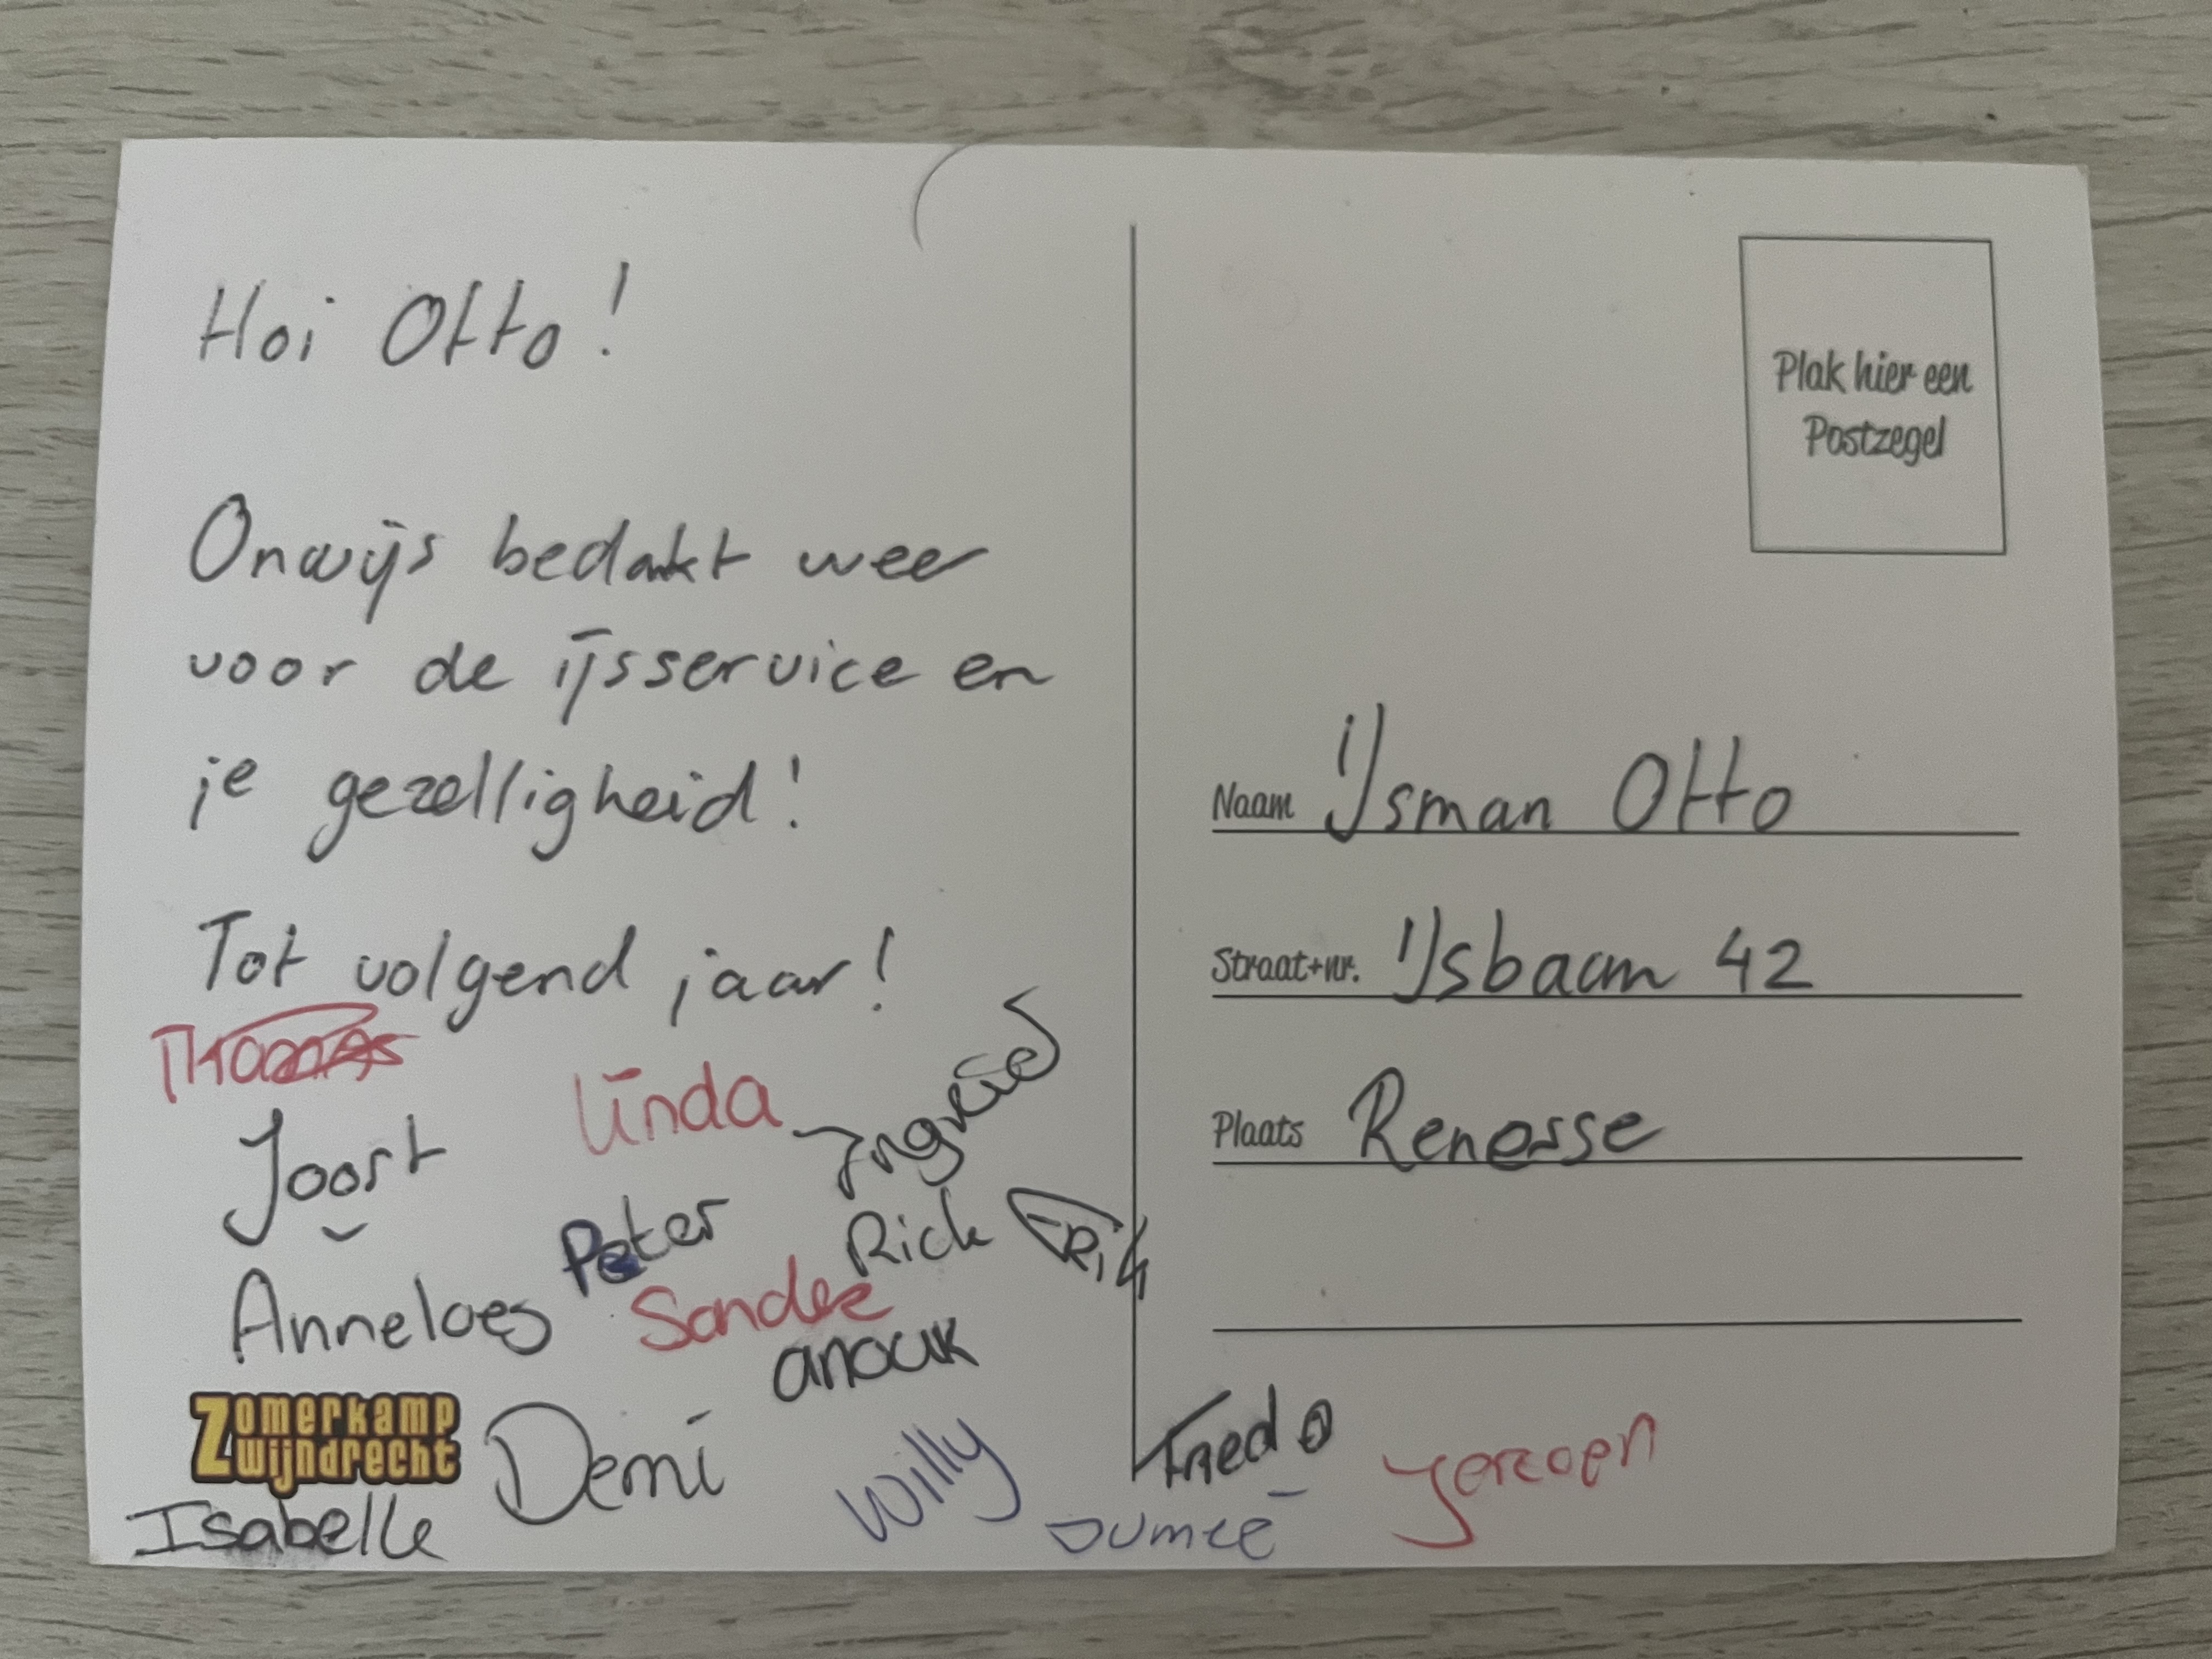 Hoi Otto!
Onwijs bedankt weer
voor de ijsservice en
je gezelligheid!
Tot volgend jaar!
Linda
Ingried
Joost
Peter
Rick
Erik
Anneloes
Sander
anouk
Zomerkamp
Zwijndrecht
Demi
Willy
Fred
Jeroen
Isabelle
Plak hier een
Postzegel
Naam IJsman Otto
Straat+nr. IJsbaan 42
Plaats Renesse